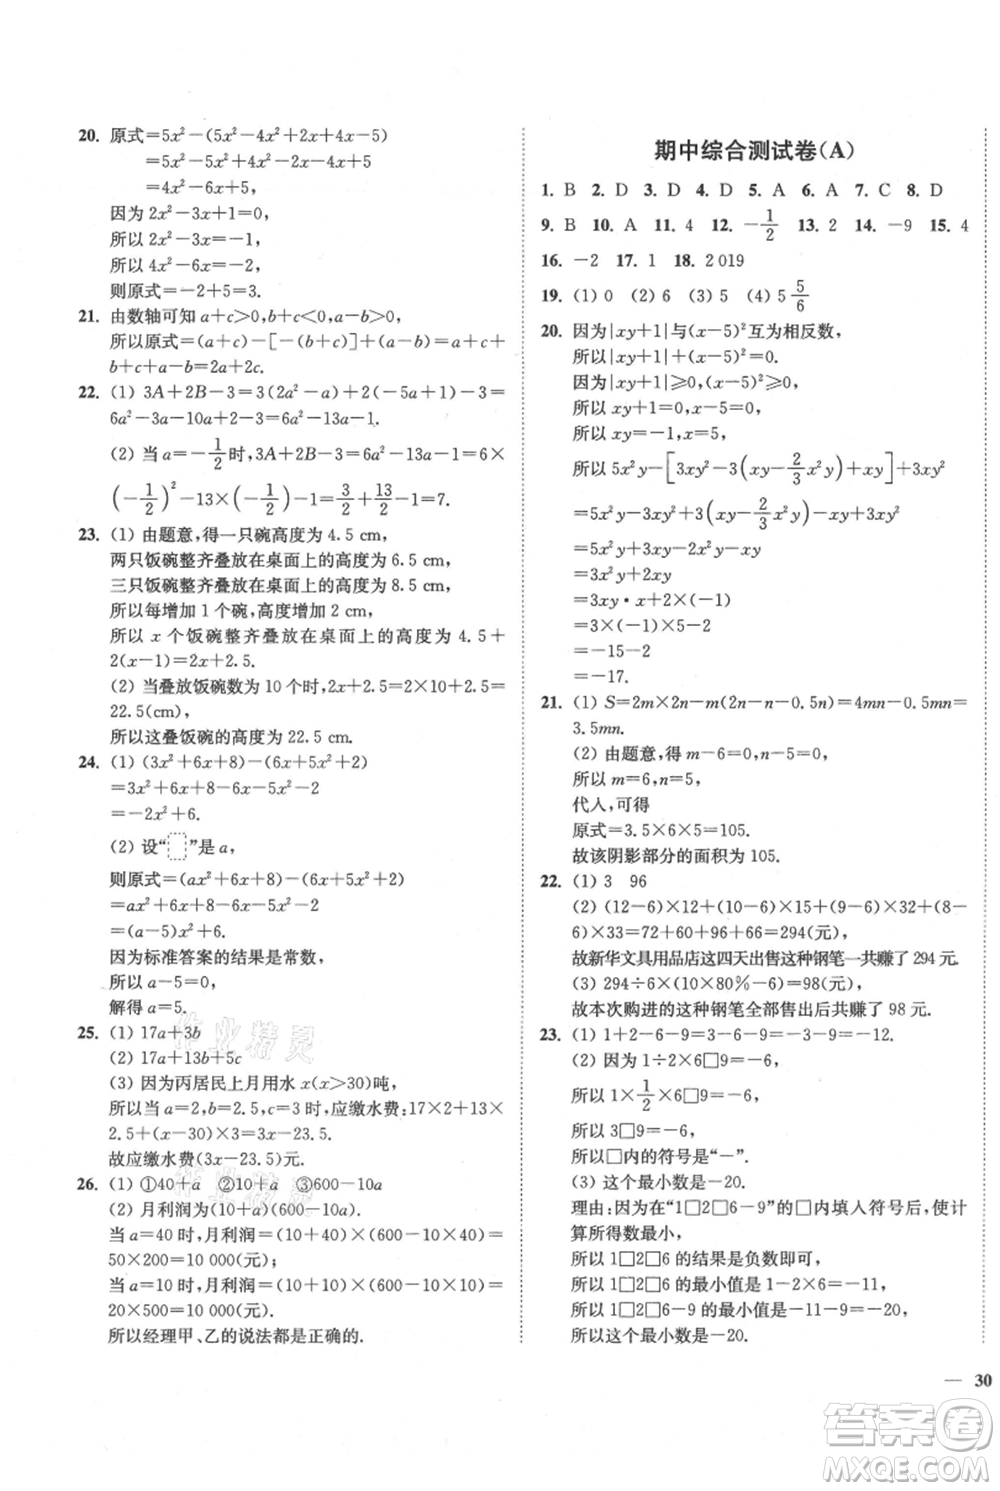 20. 原式=5x²-(5x²-4x²+2x+4x-5)
=5x²-5x²+4x²-2x-4x+5
=4x²-6x+5,
因为 2x²-3x+1=0,
所以 2x²-3x=-1,
所以 4x²-6x=-2,
则原式=-2+5=3.
21. 由数轴可知 a+c>0,b+c<0,a-b>0,
所以原式=(a+c)-[-(b+c)]+(a-b)=a+c+
b+c+a-b=2a+2c.
22. (1) 3A+2B-3=3(2a²-a)+2(-5a+1)-3=
6a²-3a-10a+2-3=6a²-13a-1.
(2) 当 a=-1/2时,3A+2B-3=6a²-13a-1=6×
(-1/2)²-13×(-1/2)-1=3/2+13/2-1=7.
23. (1) 由题意,得一只碗高度为 4.5 cm,
两只饭碗整齐叠放在桌面上的高度为 6.5 cm,
三只饭碗整齐叠放在桌面上的高度为 8.5 cm,
所以每增加 1 个碗,高度增加 2 cm,
所以 x 个饭碗整齐叠放在桌面上的高度为 4.5+
2(x-1)=2x+2.5.
(2) 当叠放饭碗数为 10 个时,2x+2.5=2×10+2.5=
22.5(cm),
所以这叠饭碗的高度为 22.5 cm.
24. (1) (3x²+6x+8)-(6x+5x²+2)
=3x²+6x+8-6x-5x²-2
=-2x²+6.
(2) 设“□”是 a,
则原式=(ax²+6x+8)-(6x+5x²+2)
=ax²+6x+8-6x-5x²-2
=(a-5)x²+6.
因为标准答案的结果是常数,
所以 a-5=0,
解得 a=5.
25. (1) 17a+3b
(2) 17a+13b+5c
(3) 因为丙居民上月用水 x(x>30)吨,
所以当 a=2,b=2.5,c=3 时,应缴水费:17×2+13×
2.5+(x-30)×3=3x-23.5.
故应缴水费(3x-23.5)元.
26. (1) ①40+a ②10+a ③600-10a
(2) 月利润为(10+a)(600-10a).
当 a=40 时,月利润=(10+40)×(600-10×40)=
50×200=10 000(元);
当 a=10 时,月利润=(10+10)×(600-10×10)=
20×500=10 000(元),
所以经理甲、乙的说法都是正确的.
期中综合测试卷(A)
1. B 2. D 3. D 4. D 5. A 6. A 7. C 8. D
9. B 10. A 11. 4 12. -1/2 13. 2 14. -9 15. 4
16. -2 17. 1 18. 2 019
19. (1) 0 (2) 6 (3) 5 (4) 5 5/6
20. 因为|xy+1|与(x-5)²互为相反数,
所以|xy+1|+(x-5)²=0.
因为|xy+1|≥0,(x-5)²≥0,
所以 xy+1=0,x-5=0,
所以 xy=-1,x=5,
所以 5x²y-[3xy²-3(xy-2/3x²y)+xy]+3xy²
=5x²y-3xy²+3(xy-2/3x²y)-xy+3xy²
=5x²y+3xy-2x²y-xy
=3x²y+2xy
=3xy·x+2xy
=3×(-1)×5-2
=-15-2
=-17.
21. (1) S=2m×2n-m(2n-0.5n)=4mn-0.5mn=
3.5mn.
(2) 由题意,得 m-6=0,n-5=0,
所以 m=6,n=5,
代人,可得
原式=3.5×6×5=105.
故该阴影部分的面积为 105.
22. (1) 3 96
(2) (12-6)×12+(12-6)×15+(9-6)×32+(8-
6)×33=72+60+96+66=294(元),
故新华文具用品店这四天出售这种钢笔一共赚了 294 元.
(3) 294÷6×(10×80%-6)=98(元),
故本次购进的这种钢笔全部售出后共赚了 98 元.
23. (1) 1+2-6-9=3-6-9=-3-9=-12.
(2) 因为 1÷2×6□9=-6,
所以 1×1/2×6□9=-6,
所以 3□9=-6,
所以□内的符号是“-”.
(3) 这个最小数是-20.
理由:因为在“1□2□6-9”的□内填入符号后,使计
算所得数最小,
所以 1□2□6 的结果是负数即可,
所以 1□2□6 的最小值是 1-2×6=-11,
所以 1□2□6-9 的最小值是-11-9=-20,
所以这个最小数是-20.
— 30
作业精灵
作业精灵
答案卷
MXQE.COM